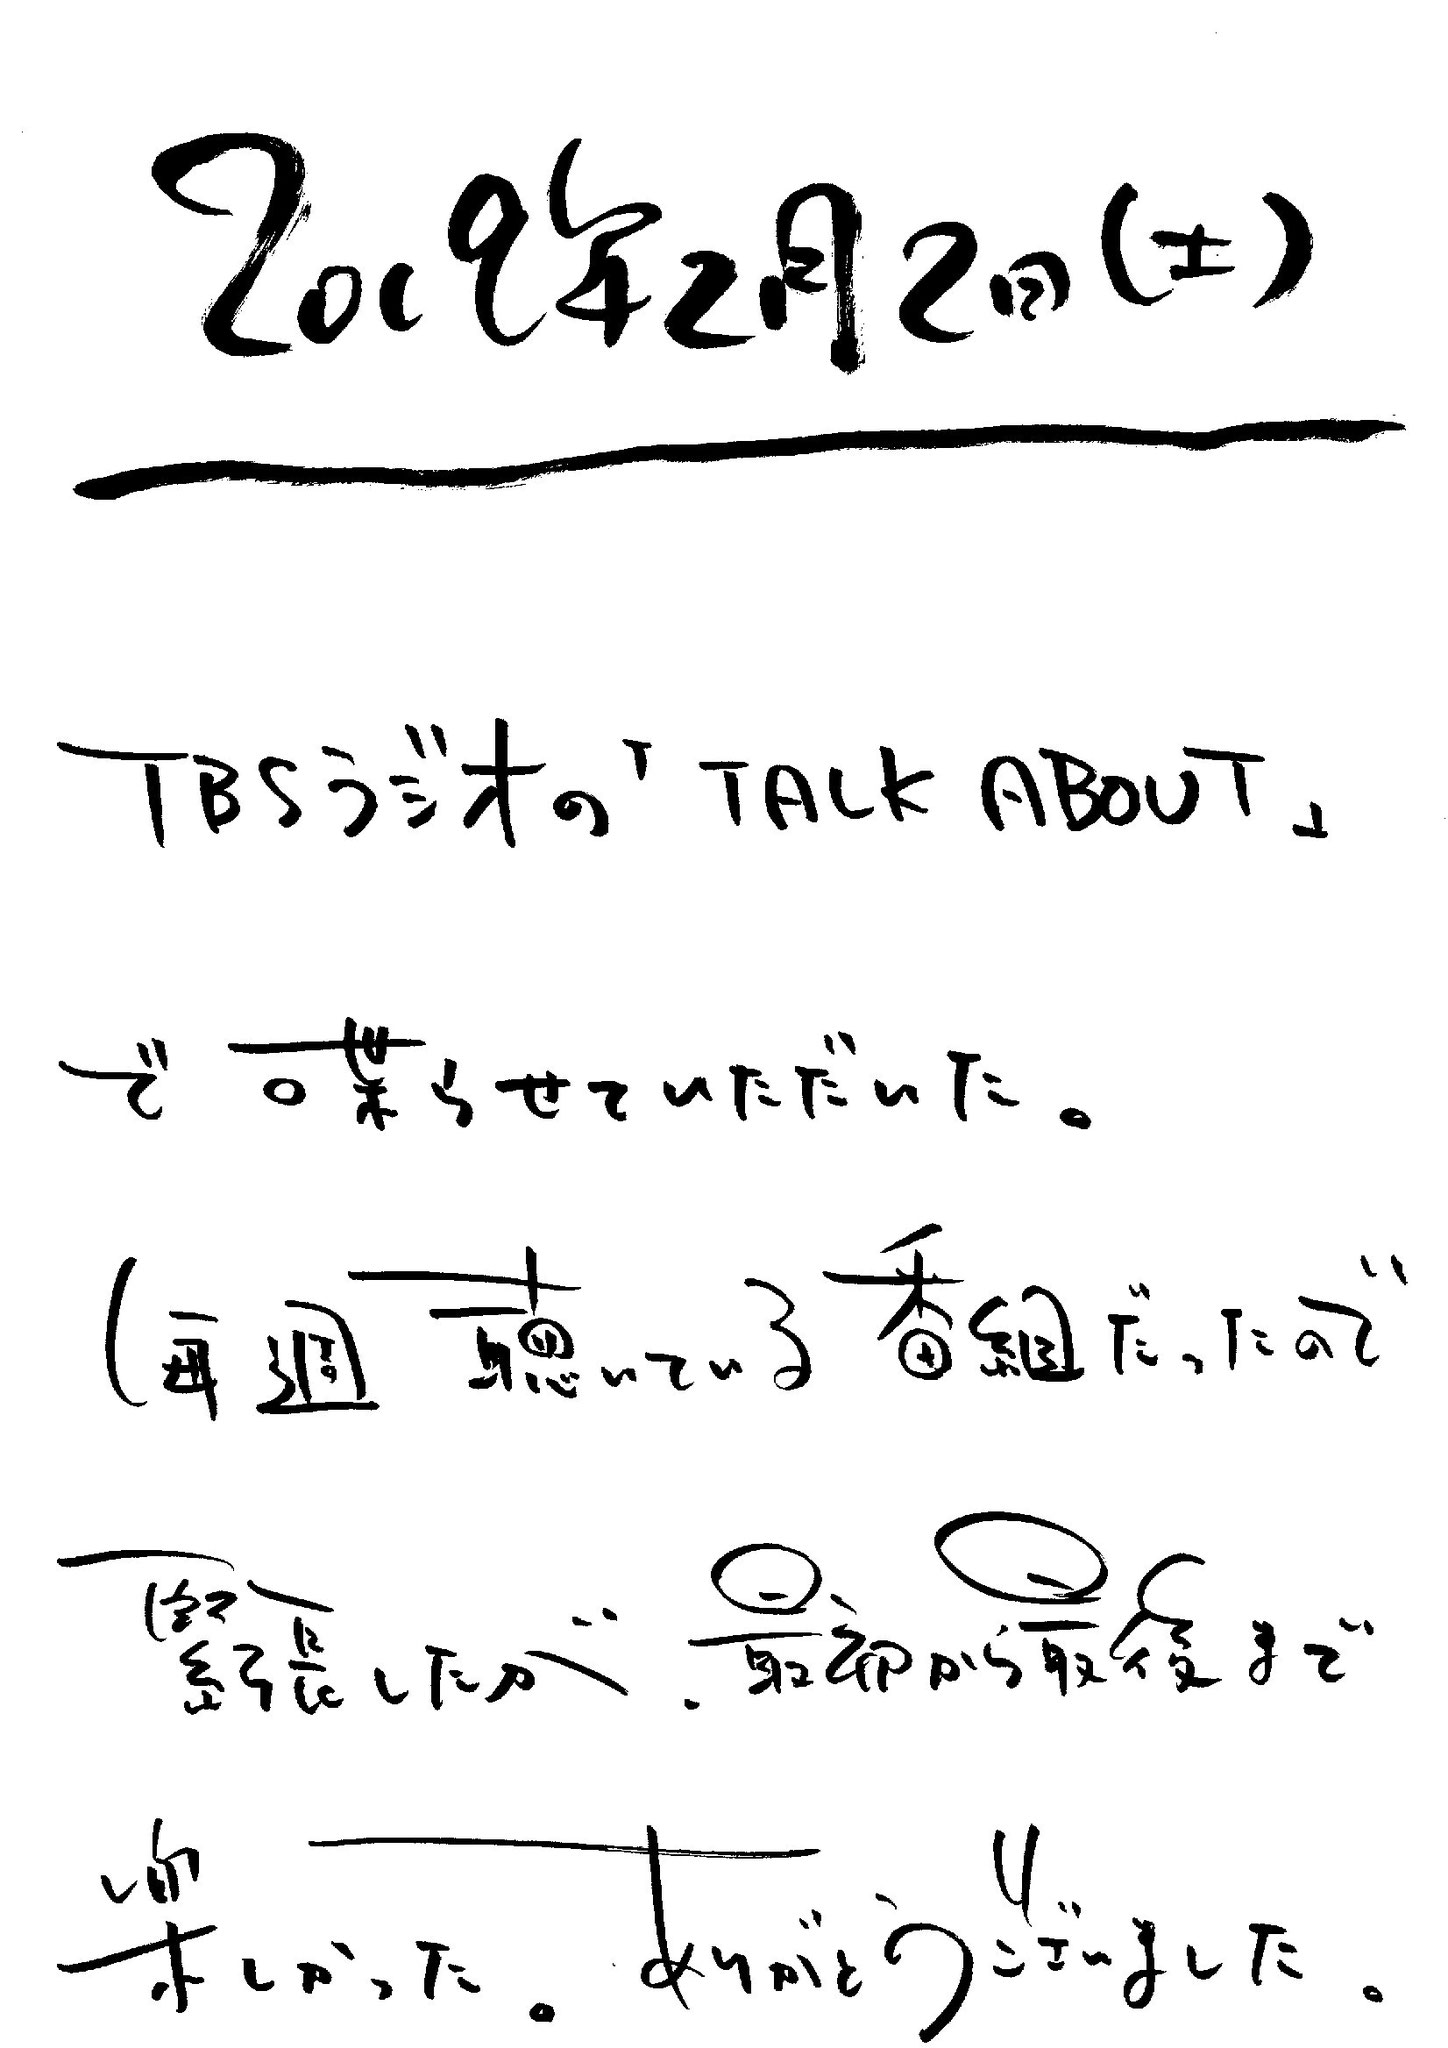 2019年2月2日(土)
TBSラジオの「TALK ABOUT」
で喋らせていただいた。
(毎週聴いている番組だったので
緊張したが、最初から最後まで
楽しかった。ありがとうございました。